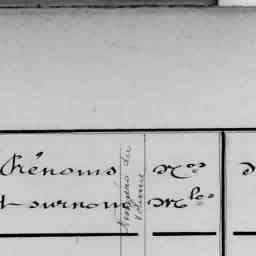 Prénoms
et surnoms
Numéro du
Volume
Nos